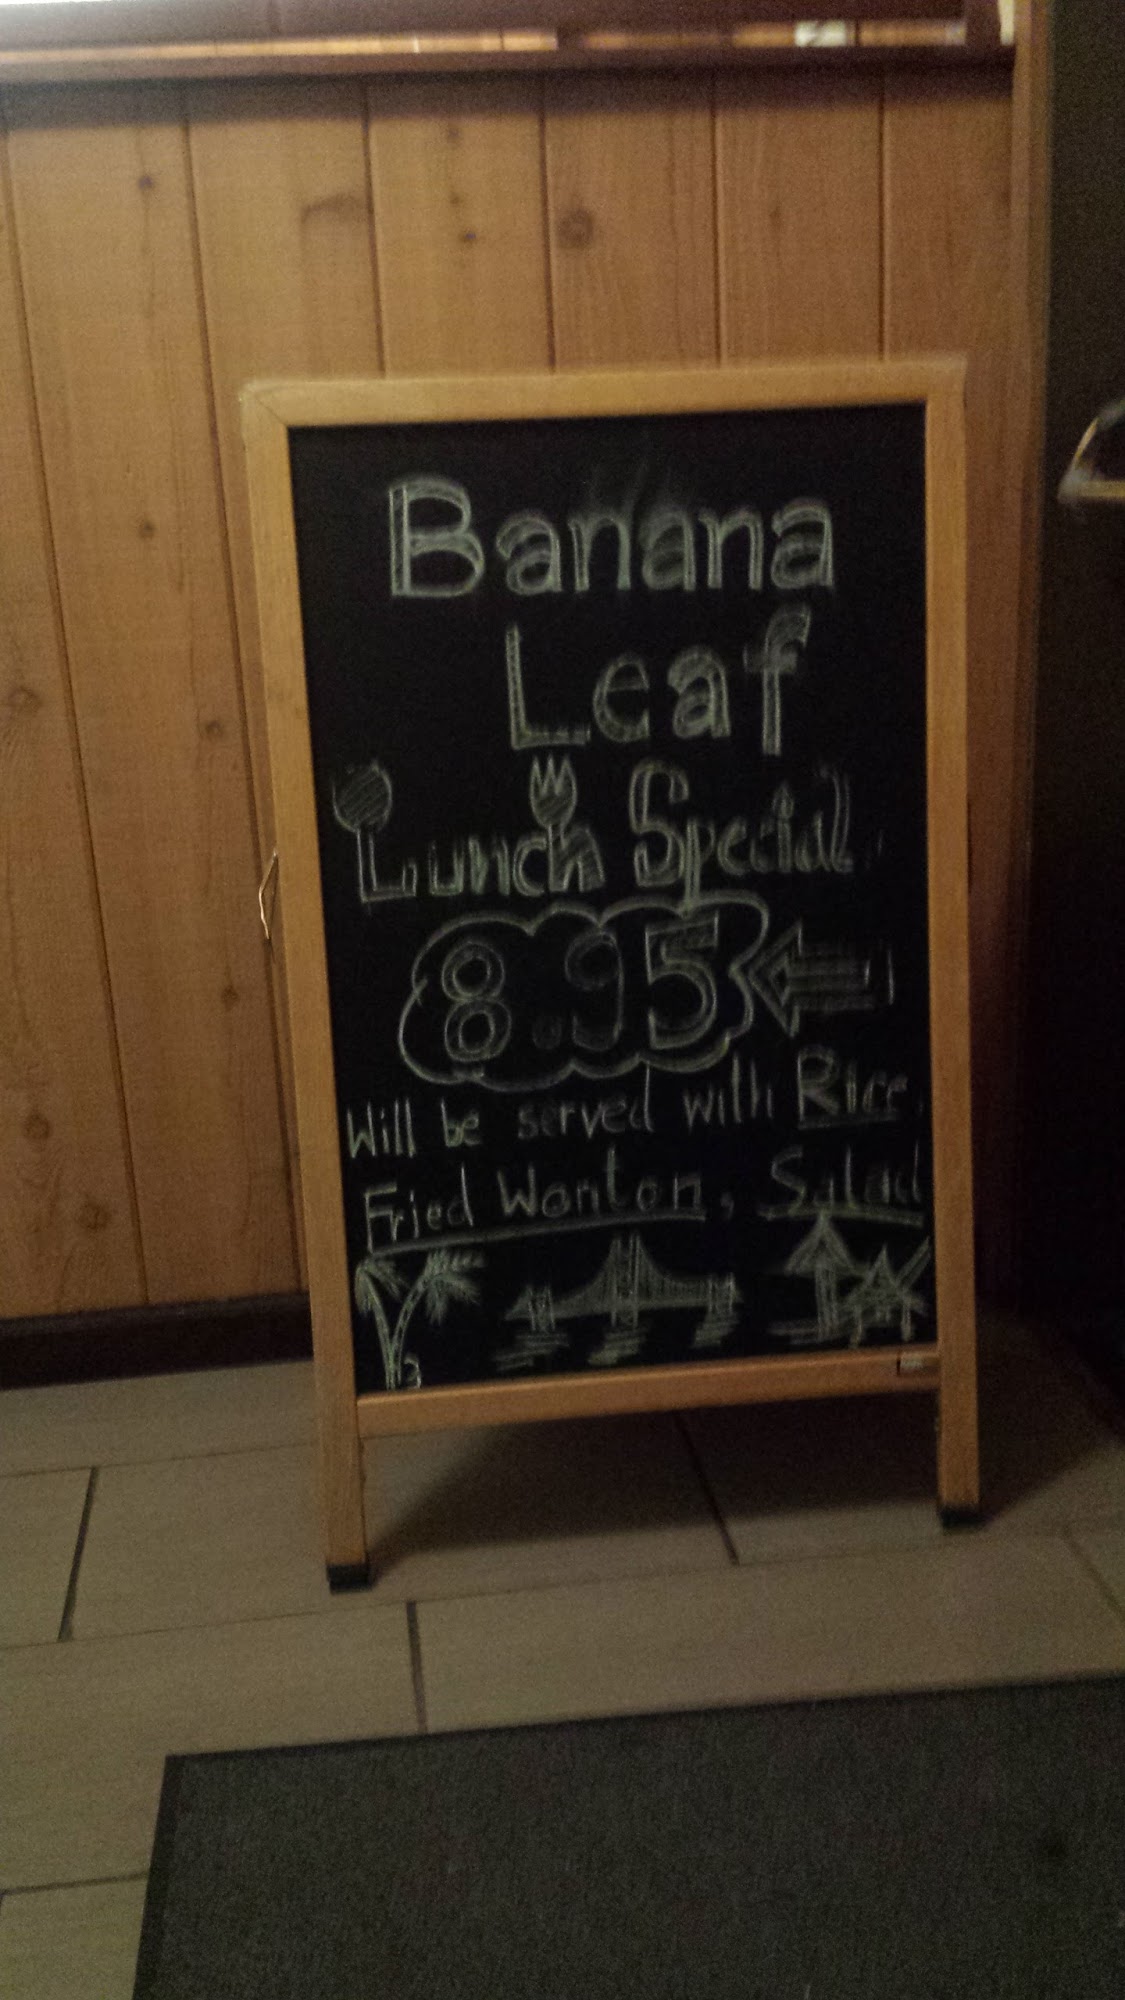 Banana
Leaf
Lunch Special
8.95
Will be served with Rice,
Fried Wonton, Salad